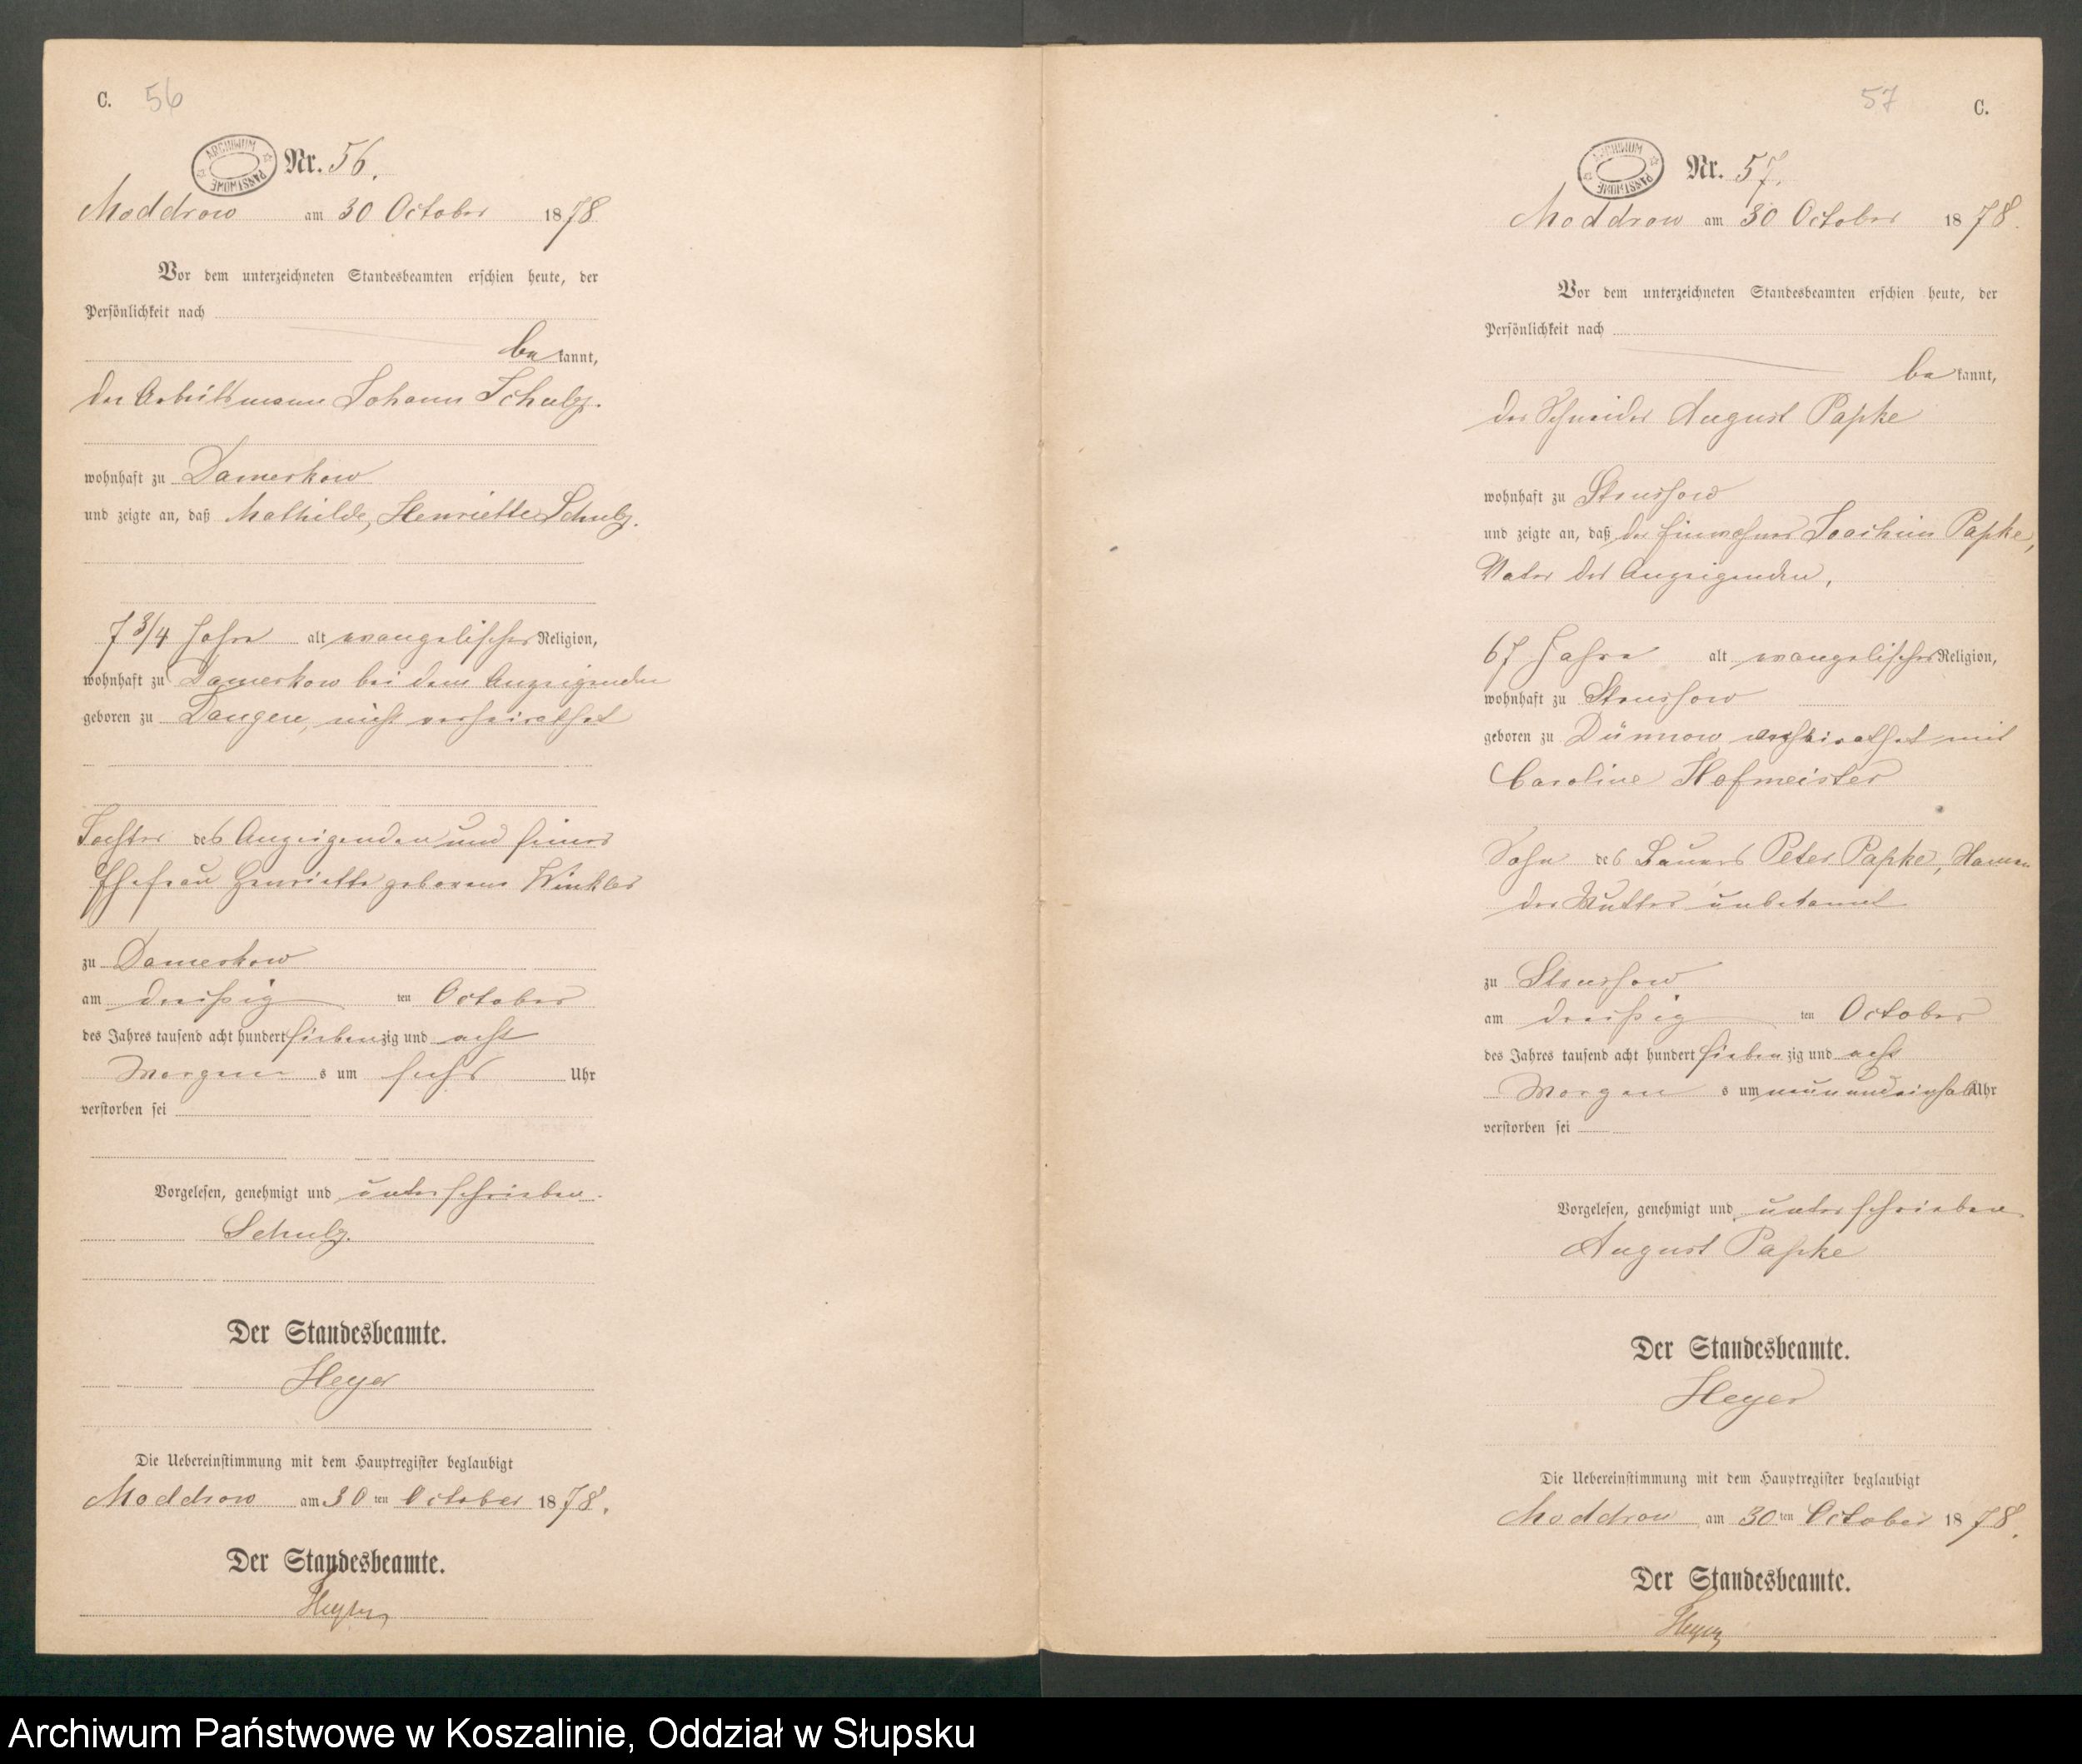 C. 56
ARCHIWUM PAŃSTWOWE
Nr. 56.
Moddrow am 30 October 1878
Vor dem unterzeichneten Standesbeamten erschien heute, der
Persönlichkeit nach
bekannt,
der Arbeitsmann Johann Schulz.
wohnhaft zu Damerkow
und zeigte an, daß Mathilde, Henriette Schulz.
7 3/4 Jahre alt evangelischer Religion,
wohnhaft zu Damerkow bei dem Anzeigenden
geboren zu Dangen, nicht verheirathet
Tochter des Anzeigenden und seiner
Ehefrau Henriette geborene Winkler
zu Damerkow
am dreißigten October
des Jahres tausend acht hundert siebenzig und acht
Morgens um sechs Uhr
verstorben sei
Vorgelesen, genehmigt und unterschrieben.
Schulz.
Der Standesbeamte.
Heyer
Die Uebereinstimmung mit dem Hauptregister beglaubigt
Moddrow am 30ten October 1878.
Der Standesbeamte.
Heyer
57 C.
ARCHIWUM PAŃSTWOWE
Nr. 57.
Moddrow am 30 October 1878.
Vor dem unterzeichneten Standesbeamten erschien heute, der
Persönlichkeit nach
bekannt,
der Schneider August Papke
wohnhaft zu Strussow
und zeigte an, daß der Einwohner Joachim Papke,
Vater des Anzeigenden,
67 Jahre alt evangelischer Religion,
wohnhaft zu Strussow
geboren zu Dünnow verheirathet mit
Caroline Hofmeister
Sohn des Bauers Peter Papke, Namen
der Mutter unbekannt
zu Strussow
am dreißigten October
des Jahres tausend acht hundert siebenzig und acht
Morgens um neunundeinhalb Uhr
verstorben sei
Vorgelesen, genehmigt und unterschrieben
August Papke
Der Standesbeamte.
Heyer
Die Uebereinstimmung mit dem Hauptregister beglaubigt
Moddrow am 30ten October 1878.
Der Standesbeamte.
Heyer
Archiwum Państwowe w Koszalinie, Oddział w Słupsku